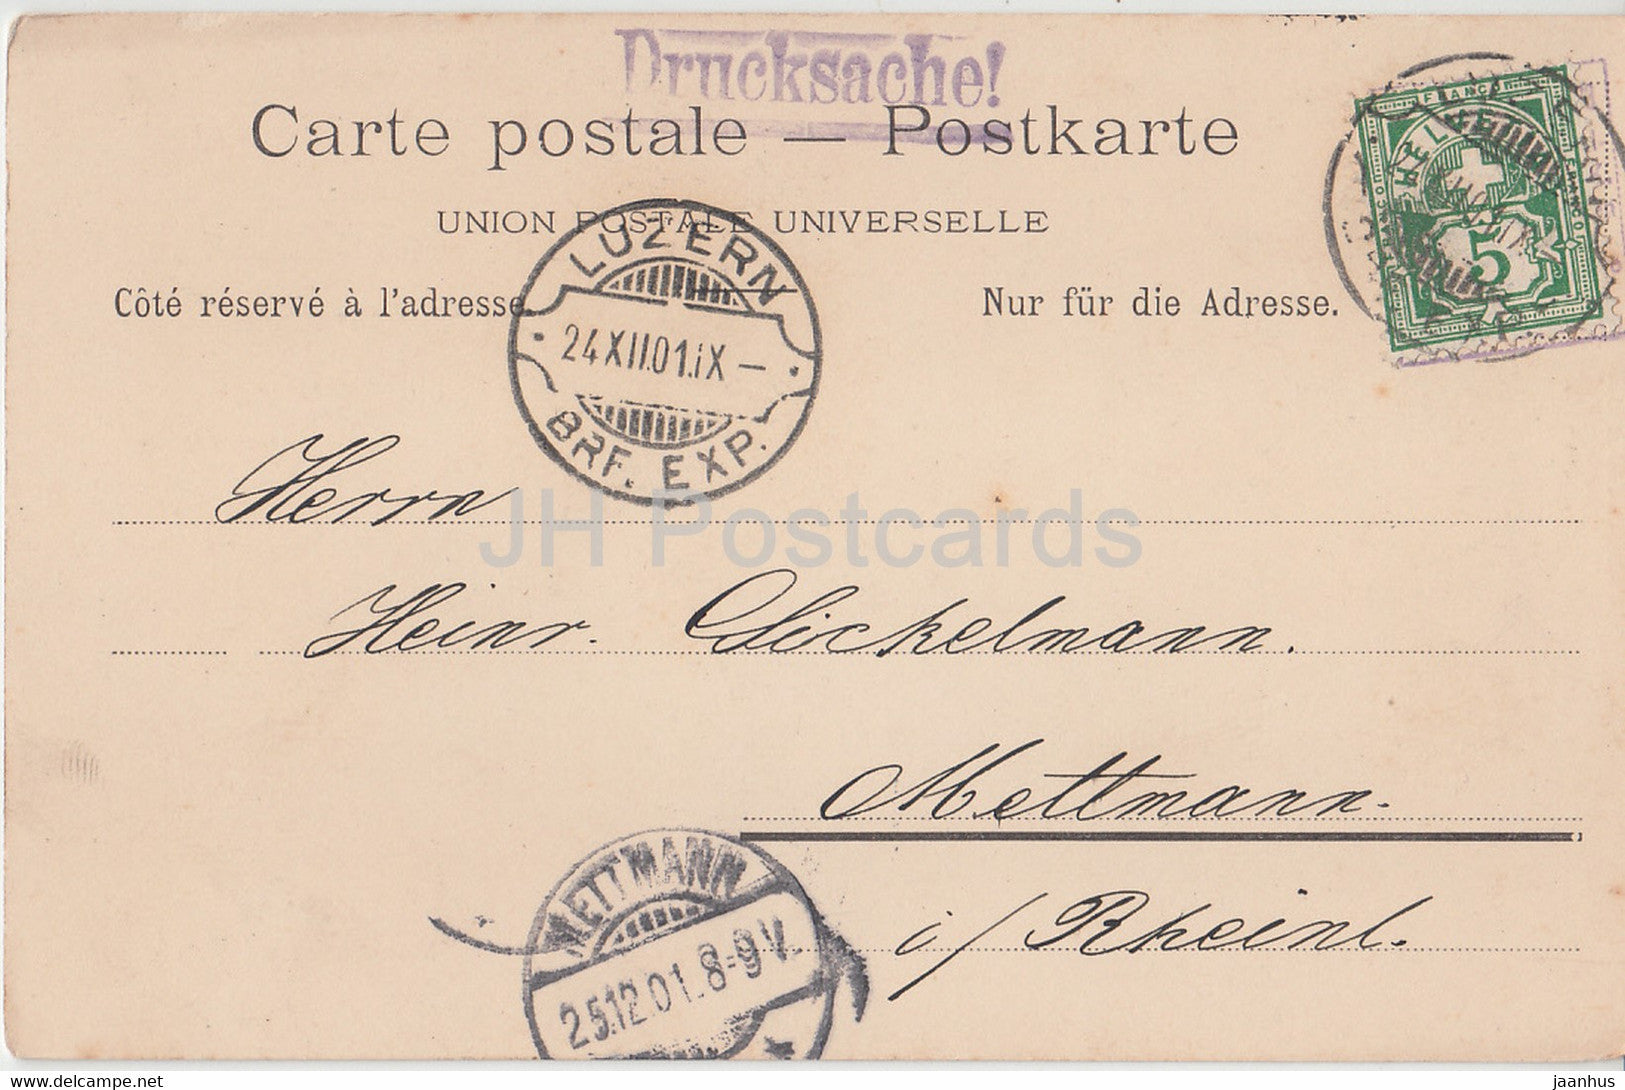 Drucksache!
Carte postale — Postkarte
UNION POSTALE UNIVERSELLE
Côté réservé à l'adresse.
Nur für die Adresse.
FRANCO
FRANCO
FRANCO
5
LUZERN
24.XII.01.IX –
BRF. EXP.
Herrn
Heinr. Glöckelmann.
Mettmann.
i/ Rheinl.
METTMANN
25.12.01. 8-9 V.
JH Postcards
www.delcampe.net
jaanhus